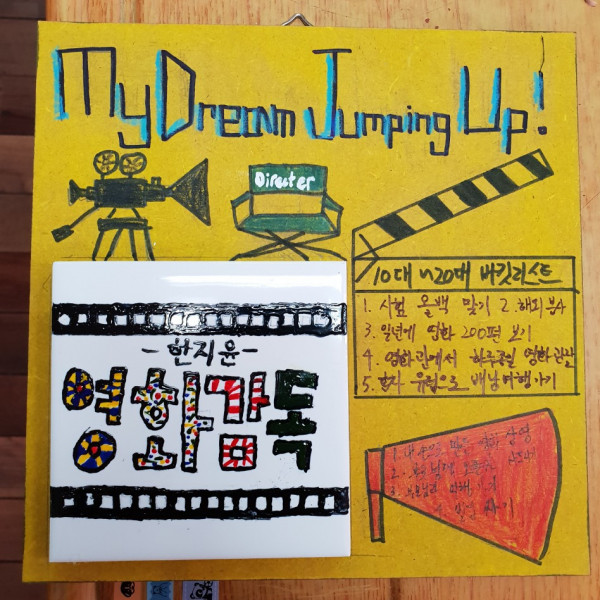 My Dream Jumping Up!
Director
10대 ~ 20대 버킷리스트
1. 시험 올백 맞기 2. 해외봉사
3. 일년에 영화 200편 보기
4. 영화관에서 하루종일 영화관람
5. 혼자 유럽으로 배낭여행가기
-한지윤-
영화감독
1. 내
2.
3.